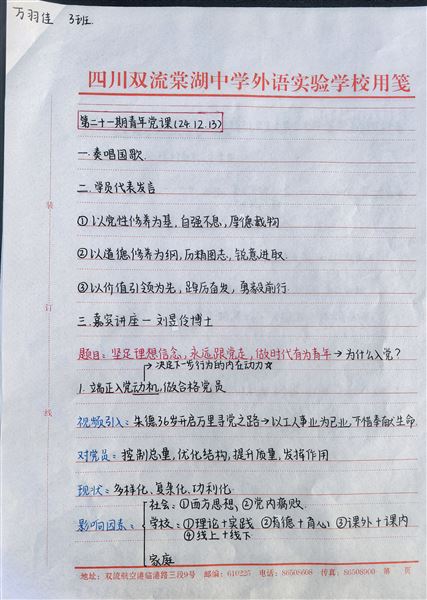 万羽佳 3班
四川双流棠湖中学外语实验学校用笺
第二十一期青年党课(24.12.13)
一.奏唱国歌.
二.学员代表发言
①以党性修养为基,自强不息,厚德载物
②以道德修养为纲,历精图志,锐意进取.
③以价值引领为先,踔厉奋发,勇毅前行.
三.嘉宾讲座—刘昱伶博士
题目:坚定理想信念,永远跟党走,做时代有为青年→为什么入党?
→决定下一步行为的内在动力☆
1.端正入党动机,做合格党员
视频引入:朱德36岁开启万里寻党之路→以工人事业为己业,不惜奉献生命.
对党员:控制总量,优化结构,提升质量,发挥作用
现状:多样化、复杂化、功利化.
影响因素:
社会:①西方思想,②党内腐败.
学校:①理论+实践 ②育德+育心 ③课外+课内
④线上+线下
家庭
装
订
线
地址:双流航空港临港路三段9号 邮编:610225 电话:86508608 传真:86508900 第 页